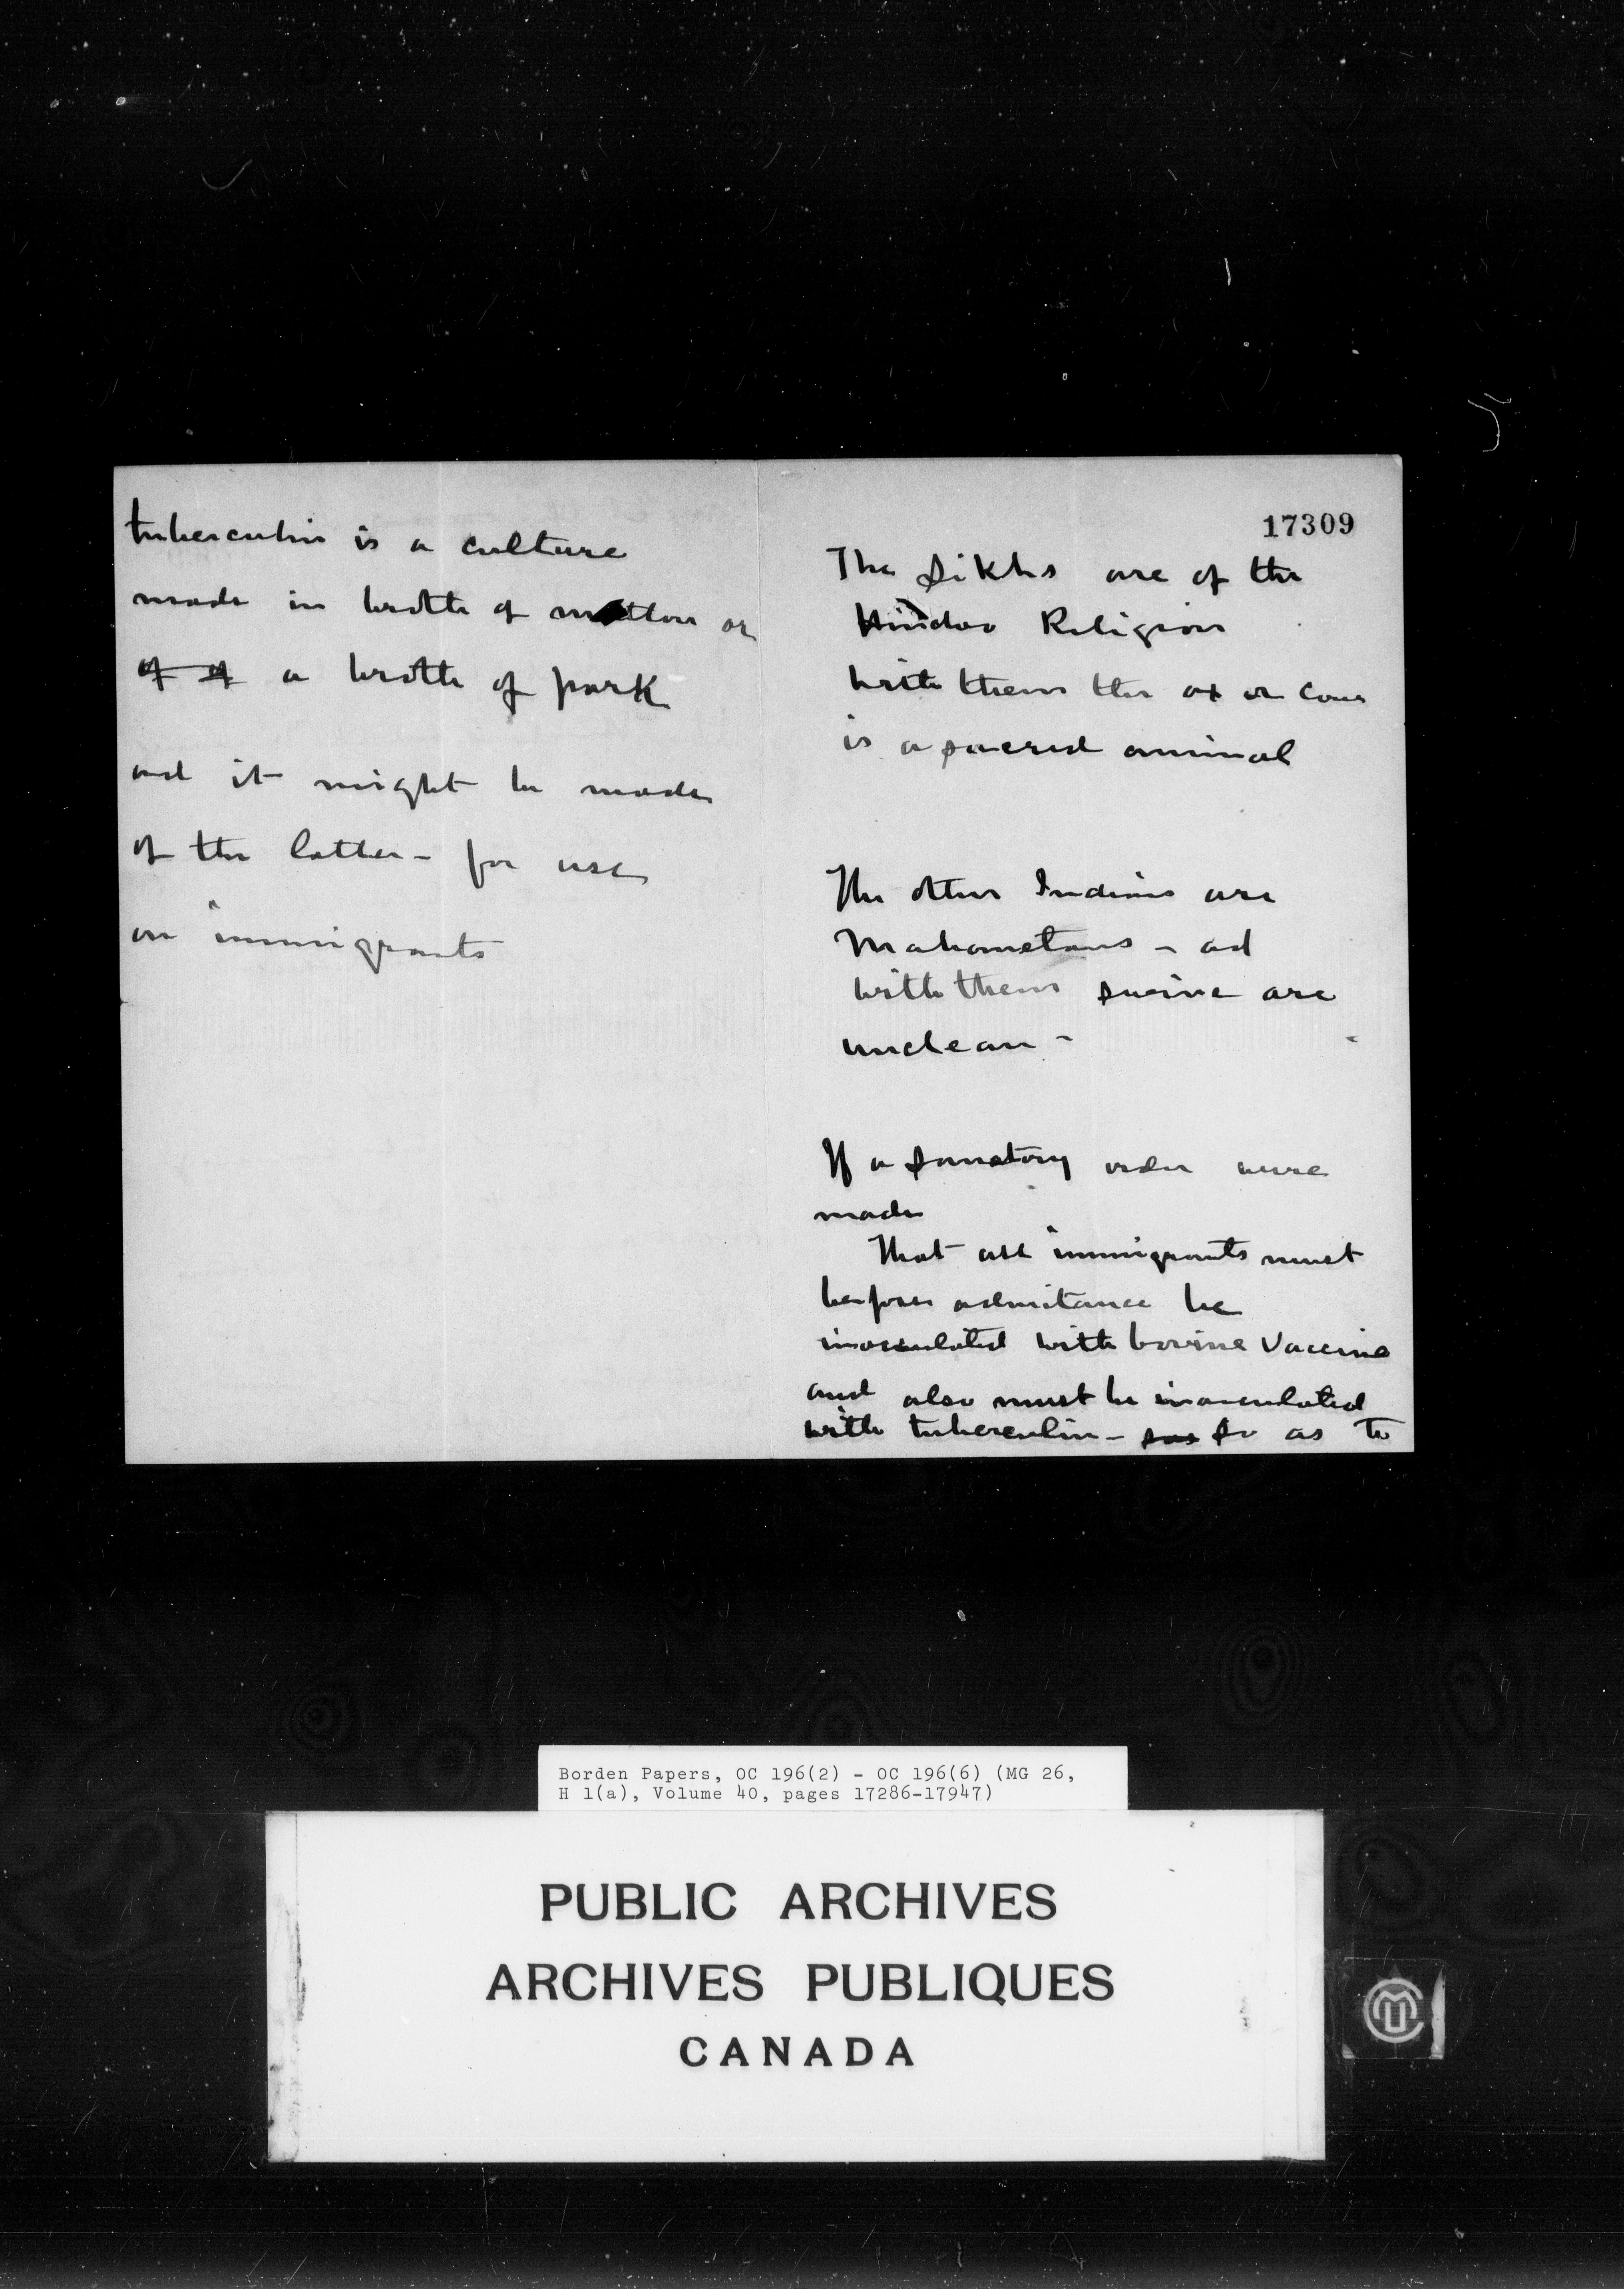 tuberculin is a culture
made in broth of mutton or
of of a broth of pork
and it might be made
of the latter - for use
on immigrants
17309
The Sikhs are of the
Hindoo Religion
with them the ox or cow
is a sacred animal
The other Indians are
Mahometans - and
with them swine are
unclean -
If a sanatory order were
made
That all immigrants must
before admitance be
inoculated with bovine Vaccine
and also must be inoculated
with tuberculin - so as to
Borden Papers, OC 196(2) - OC 196(6) (MG 26,
H 1(a), Volume 40, pages 17286-17947)
PUBLIC ARCHIVES
ARCHIVES PUBLIQUES
CANADA